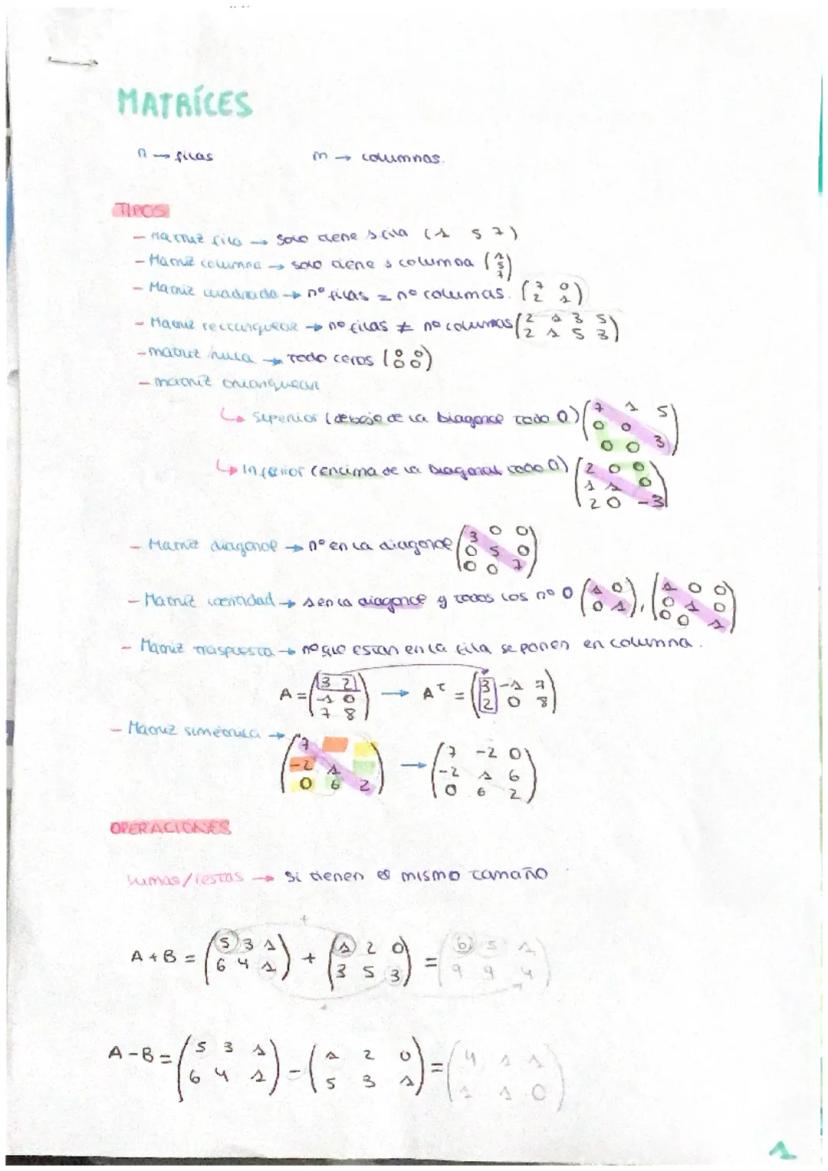 MATRÍCES
n → filas m → columnas.
TIPOS
- Matriz fila → solo tiene 1 fila (1 5 7)
- Matriz columna → solo tiene 1 columna (1 5 7)
- Matriz cuadrada → nº filas = nº columas. (7 0
2 1)
- Matriz rectangular → nº filas ≠ nº columas (2 1 3 5
2 1 5 3)
- matriz nula → todo ceros (0 0
0 0)
- matriz triangular
↳ Superior (debajo de la diagonal todo 0) (7 1 5
0 0
0 0 3)
↳ Inferior (encima de la diagonal todo 0) (2 0 0
1 1 0
2 0 -3)
- Matriz diagonal → nº en la diagonal (3 0 0
0 5 0
0 0 7)
- Matriz identidad → 1 en la diagonal y todos los nº 0 (1 0
0 1), (1 0 0
0 1 0
0 0 1)
- Matriz traspuesta → nº que estan en la fila se ponen en columna.
A = (3 2
-1 0
7 8) → Aᵗ = (3 -1 7
2 0 8)
- Matriz simétrica → (7
-2 1
0 6 2) → (7 -2 0
-2 1 6
0 6 2)
OPERACIONES
Sumas/restas → Si tienen el mismo tamaño
+
A + B = (5 3 1
6 4 1) + (1 2 0
3 5 3) = (6 5 1
9 9 4)
A - B = (5 3 1
6 4 1) - (1 2 0
5 3 1) = (4 1 1
1 1 0)
1